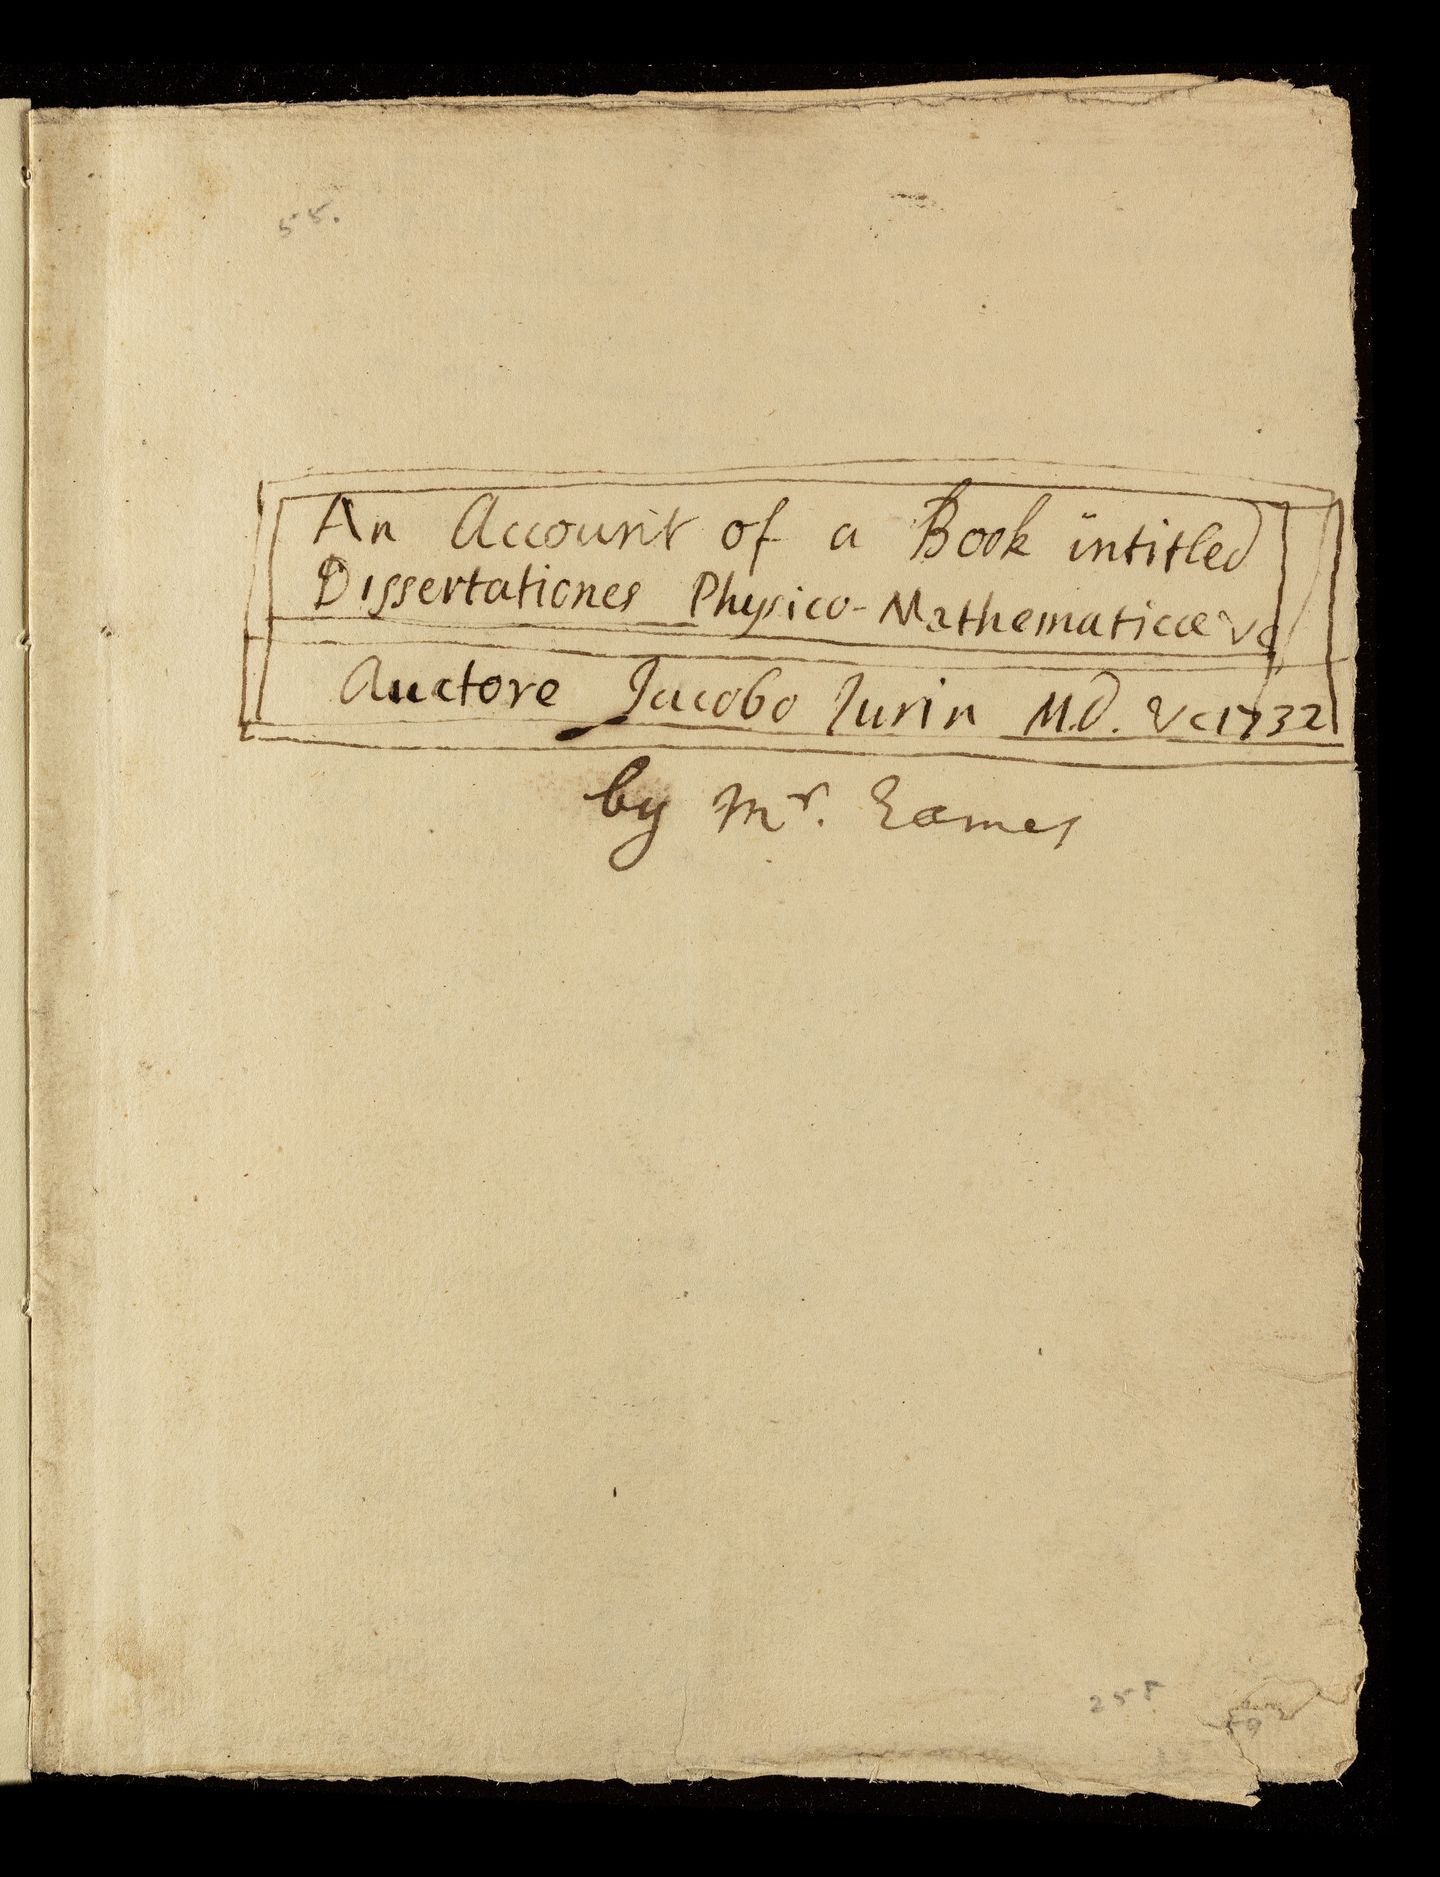 55.
An Account of a Book intitled
Dissertationes Physico-Mathematicæ &c
Auctore Jacobo Jurin M.D. &c 1732
by Mr. Eames